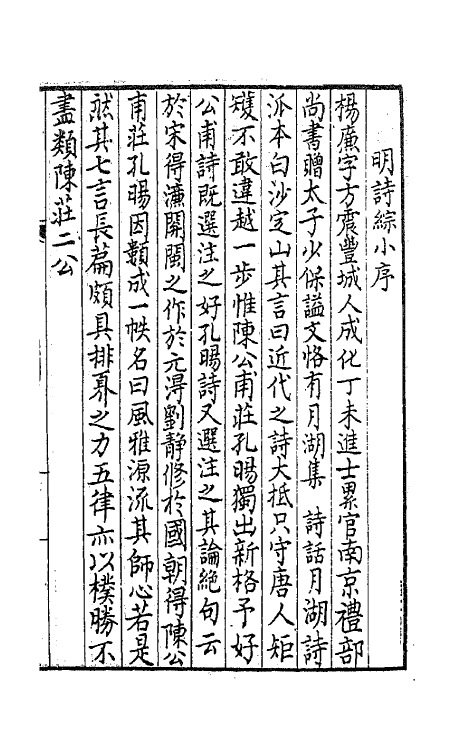 明詩綜小序
楊廉字方震豐城人成化丁未進士累官南京禮部
尚書贈太子少保謚文恪有月湖集 詩話月湖詩
派本白沙定山其言曰近代之詩大抵只守唐人矩
矱不敢違越一步惟陳公甫莊孔暘獨出新格予好
公甫詩既選注之好孔暘詩又選注之其論絶句云
於宋得濂關閩之作於元得劉静修於國朝得陳公
甫莊孔暘因纇成一帙名曰風雅源流其師心若是
然其七言長篇頗具排奡之力五律亦以樸勝不
盡類陳莊二公